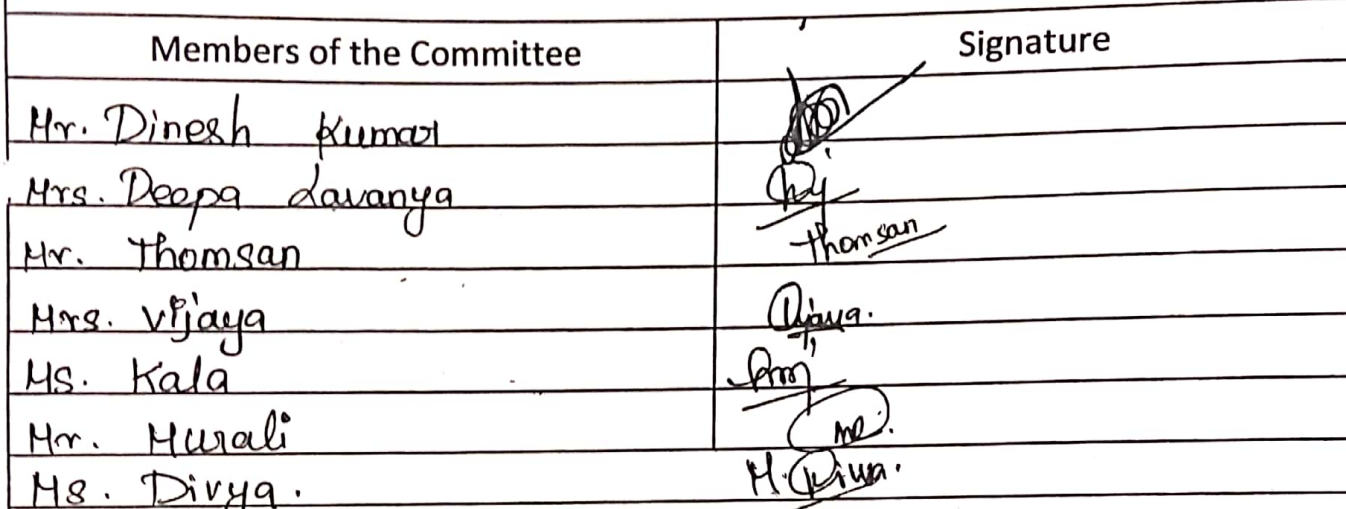 Members of the Committee Signature
Mr. Dinesh Kumar
Mrs. Deepa Lavanya
Mr. Thomsan Thomsan
Mrs. Vijaya
Ms. Kala
Mr. Murali
Ms. Divya.